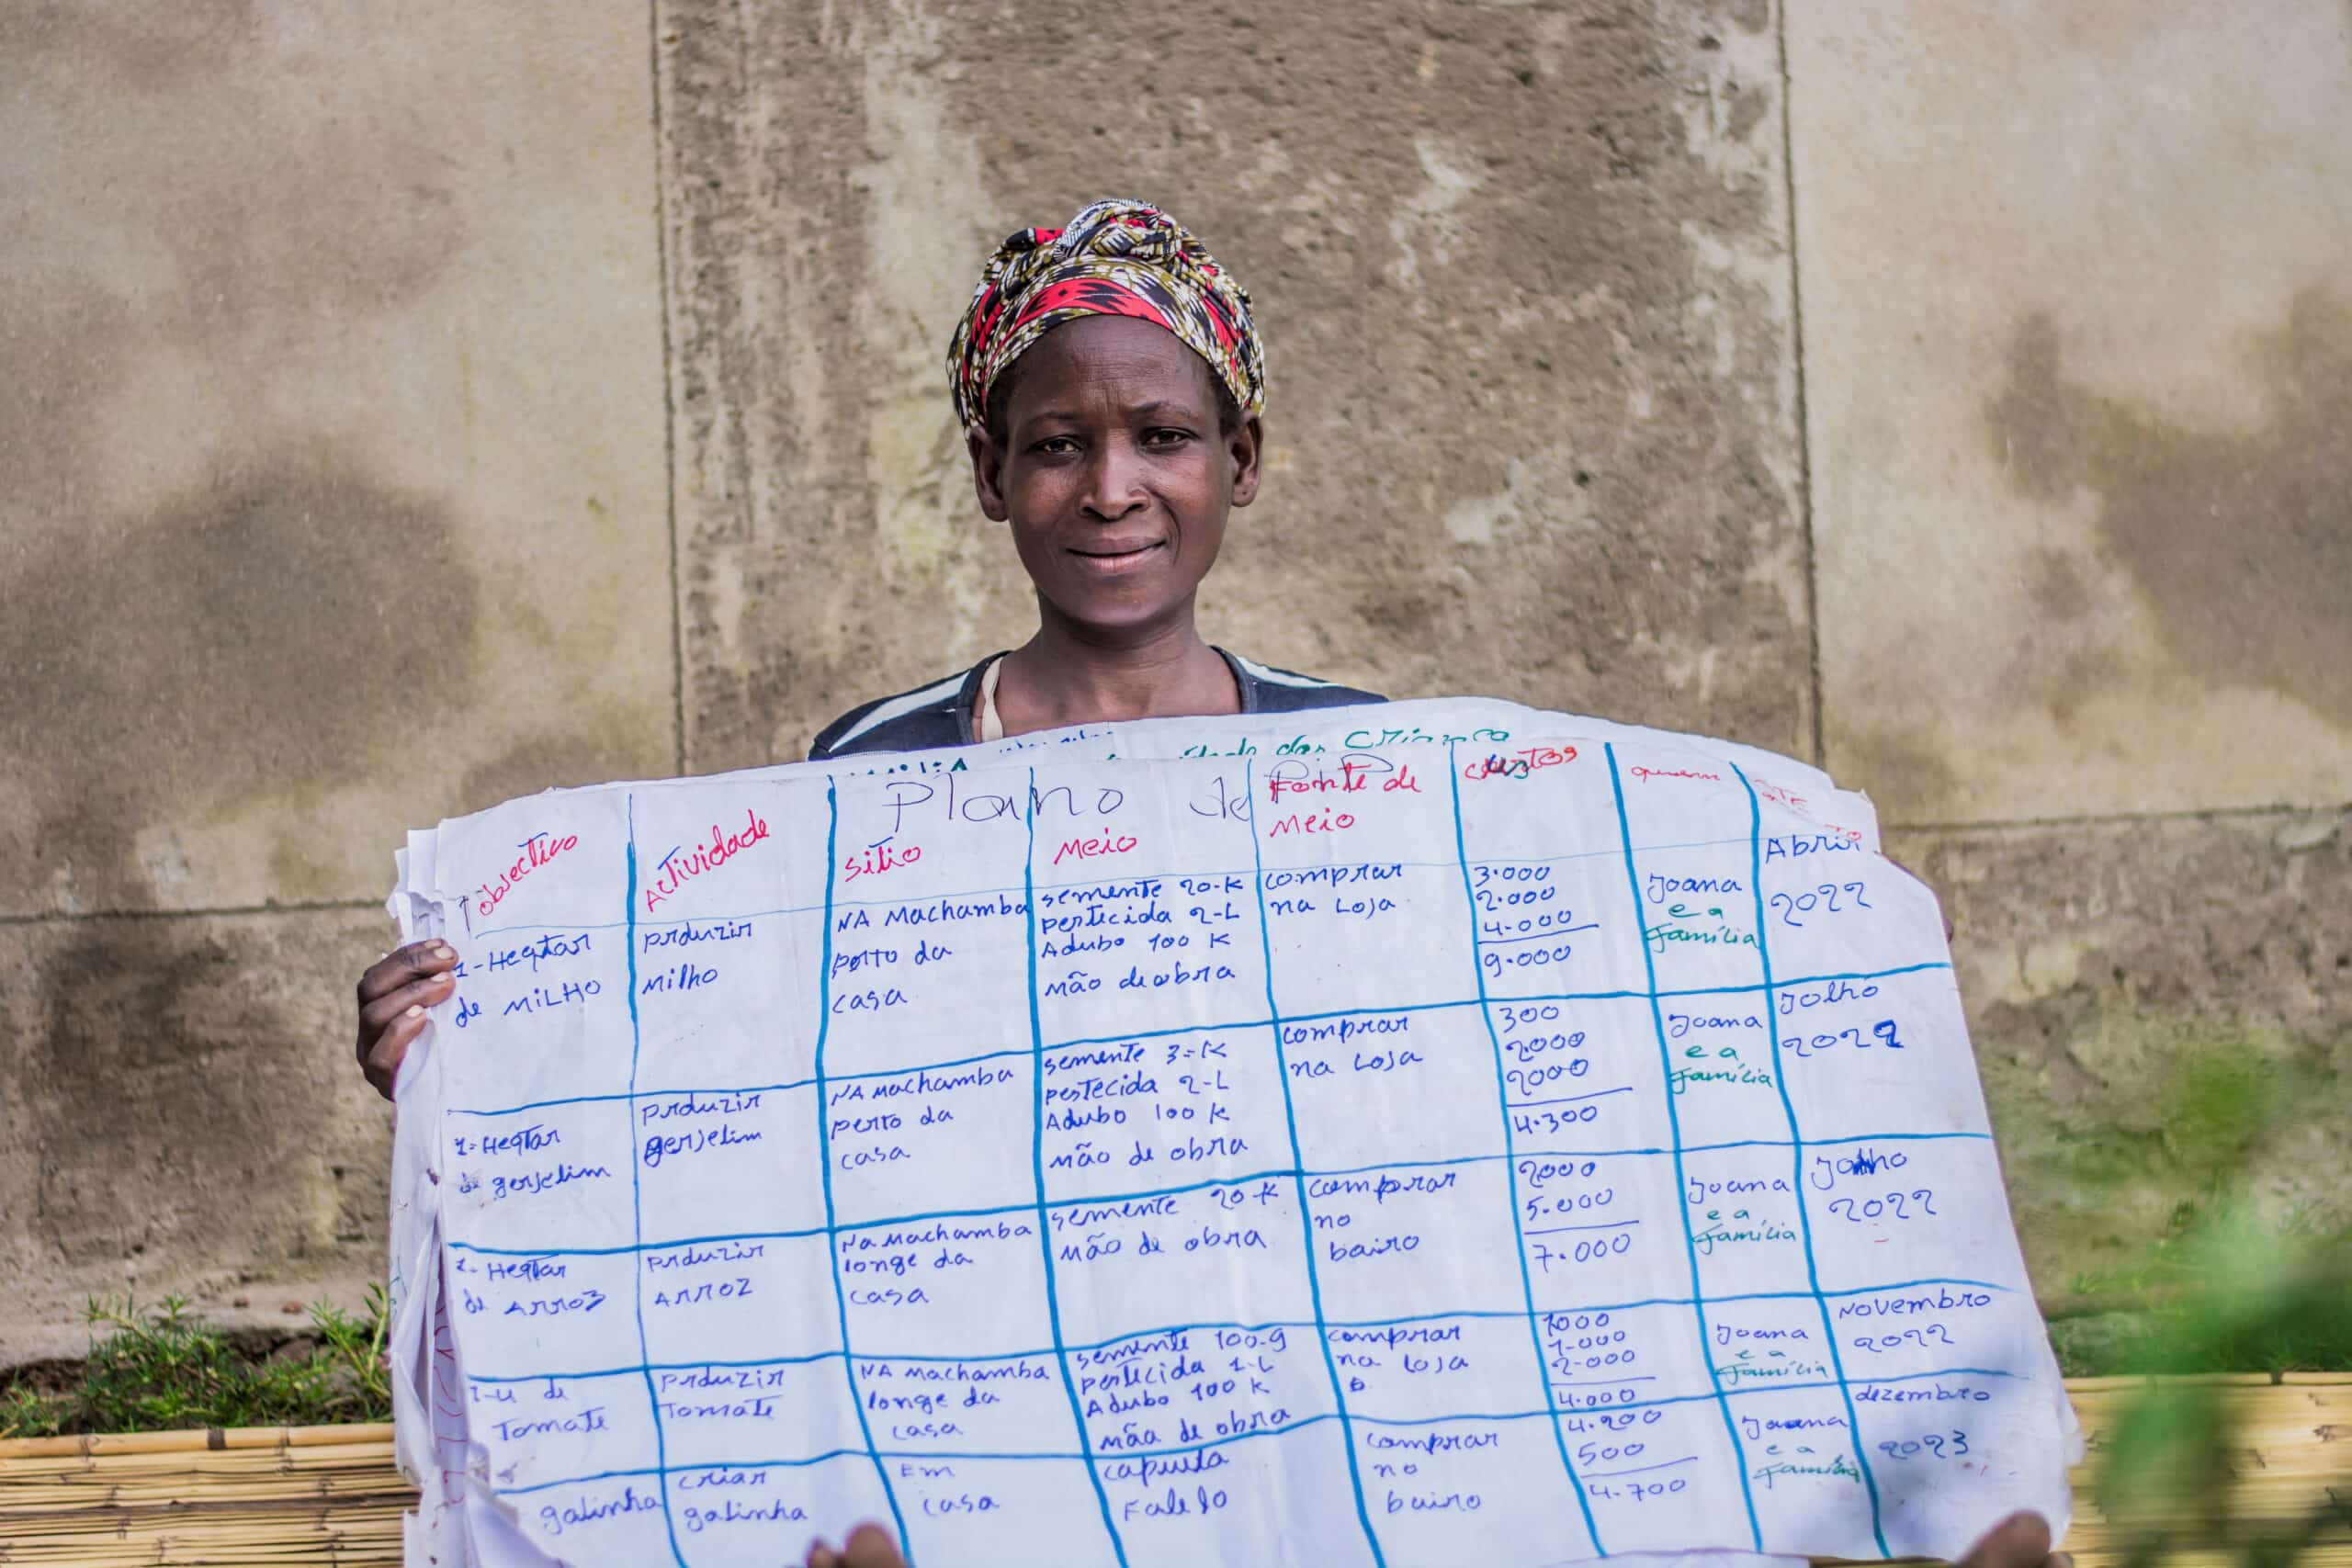 das Criança
Plano de
objectivo
Actividade
sitio
Meio
Fonte de
Meio
custos
quem
1-Heqtar
de MILHO
prduzir
Milho
NA Machamba
perto da
casa
semente 20-K
pesticida 2-L
Adubo 100 K
mão de obra
comprar
na Loja
3.000
2.000
4.000
9.000
Joana
e a
família
Abril
2022
1-Heqtar
de gerjelim
prduzir
gerjelim
NA Machamba
perto da
casa
semente 3-K
pestecida 2-L
Adubo 100 K
mão de obra
comprar
na Loja
300
2000
2000
4.300
Joana
e a
família
Jolho
2022
1-Heqtar
de Arroz
prduzir
Arroz
Na Machamba
longe da
casa
semente 20 K
mão de obra
comprar
no
bairo
2000
5.000
7.000
Joana
e a
família
2022
de
Tomate
prduzir
Tomate
NA Machamba
longe da
casa
semente 100-g
pestecida 1-L
Adubo 100 K
mão de obra
comprar
na Loja
1000
1-000
2-000
4.000
Joana
e a
família
Novembro
2022
galinha
criar
galinha
Em
casa
capuela
Falelo
comprar
no
bairo
4.200
500
4.700
Joana
e a
família
dezembro
2023